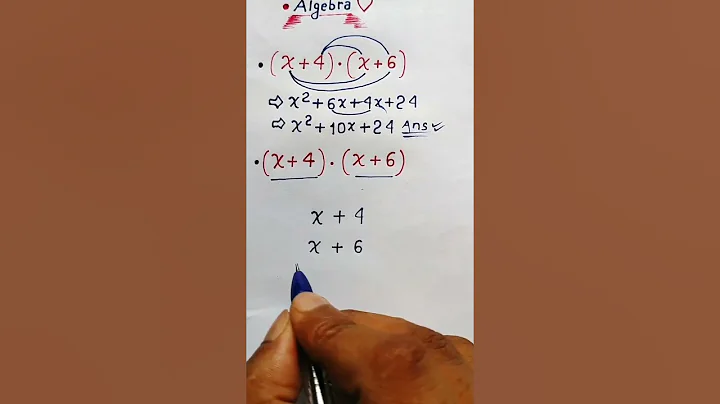 • Algebra ♡
• (x+4)·(x+6)
⇨ x²+6x+4x+24
⇨ x²+10x+24 Ans
• (x+4)·(x+6)
x + 4
x + 6